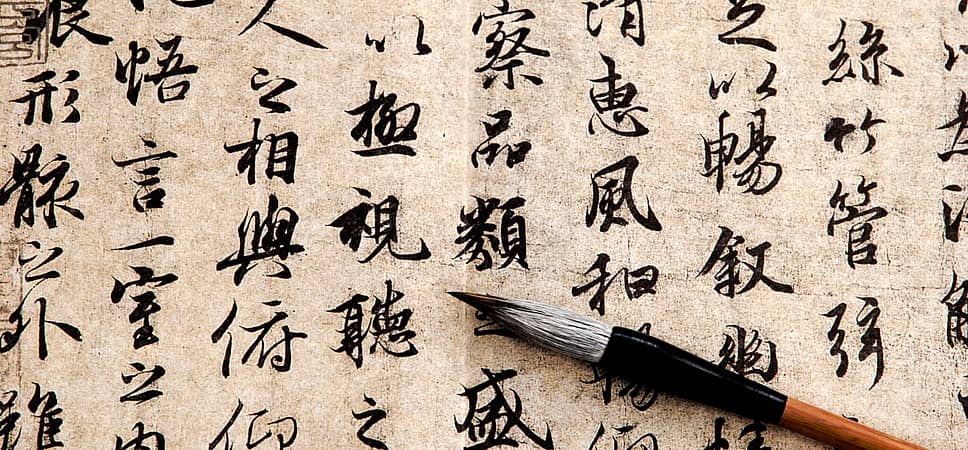 絲竹管弦
足以暢叙幽情
清惠風和暢仰
察品類之盛
以極視聽之
人之相與俯仰
悟言一室之內
浪形骸之外雖